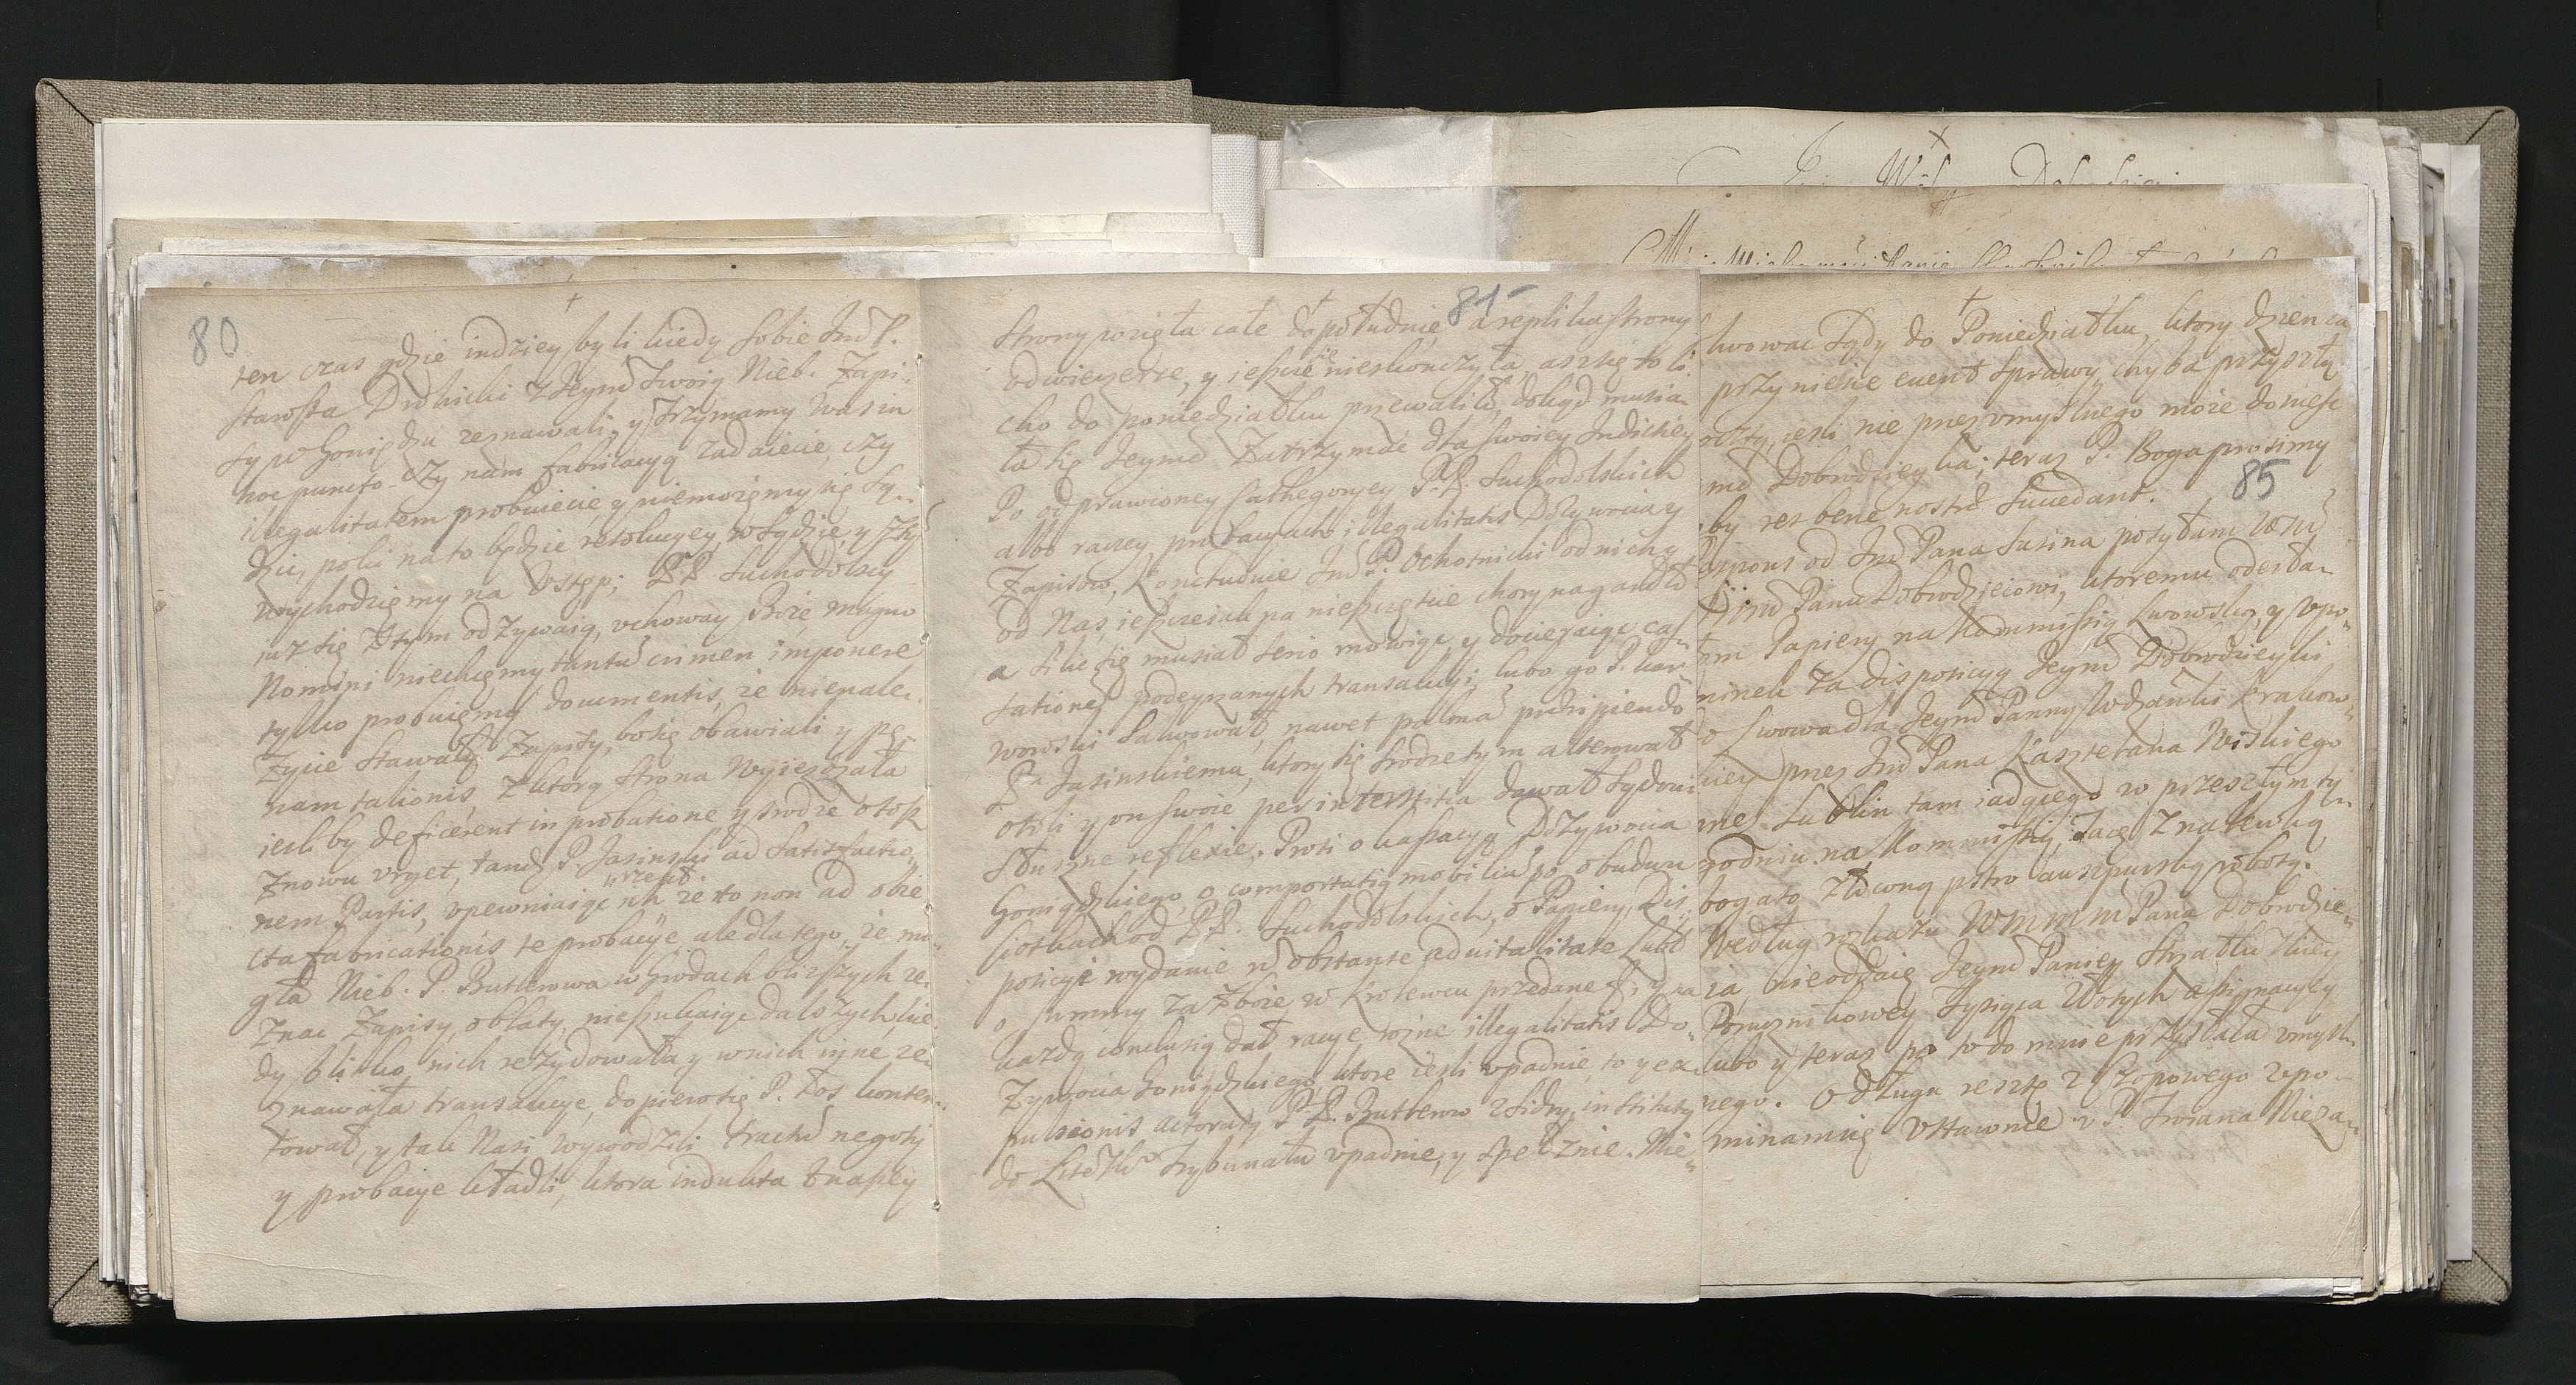 80
ten czas gdzie indziey byli kiedy sobie Jmć P.
Starosta Drohicki z Jeymć Swoią Nieb. Zapi-
sy w Goniądzu zeznawali, y trzymamy Was in
hoc puncto czy nam fabricacyą zadaiecie, czy
illegalitatem probuiecie, y niemożemy się Są-
dzić, poki na to będzie rezolucyey, w Sądzie, y
wychodziemy na Ustęp; P.P. Suchodolscy
iuz się z tym odzywaią, uchoway Boże magno
Nomini niechcemy tantū crimen imponere
tylko probuiemy documentis, że nienale-
zycie stawały Zapisy, bo się obawiali y pę-
nam talionis, z ktorą strona wyiezdzała
iesli by deficerent in probatione y srodze o tosz
Znowu urget, tandē P. Jasinski ad Satisfactio-
nem Partis, upewniaiąc ich rzekł że to non ad obie-
cta fabricationis te probacye, ale dla tego, że mo-
gła Nieb. P. Butlerowa w Grodach bliższych ze-
Znac Zapisy, oblaty, nieszukaiąc dalszych, kie-
dy blisko nich rezydowała, y w nich inne ze-
znawała transakcye, dopiero się P. Łos konten-
tował, y tak Nasi wywodzili tractū negotij
y probacye kładli, ktora indukta t naszey
81
Strony wzięła całe do południe, a replika strony
odwieczerze, y ieszcze nieskonczyła, asz się to li-
cho do poniedziałku przewaliło, dokąd musia-
ła się Jeymć Zatrzymać dla swoiey Indukiey
Po odprawioney Cathegoryey P.P. Suchodolskich
albo raczey probacyach illegalitatis Dożywocia y
Zapisow, konkluduie Jmć P. Ochotnicki od nich y
od Nas, ieszcze iak na nieszczęście chory na gardło
a silic się musiał serio mowiąc, y docieraiąc cas-
sationē podeyrzanych transakcyi, lubo go P. Kar-
wowski salwował, nawet palmā praeripiendo
Pu Jasinskiemu, ktory się srodze tym alterował
otoli y on swoie per interstitia dawał Sądowi
słuszne reflexie. Prosi o kassacyą Dożywocia
Goniądzkiego, o comportatią mobiliū po obudwu
Siotkach od P.P. Suchodolskich, o Papiery, Dis-
pozycyi wydanie nō obstante aduitalitate Lubo
o summy za Zboże w Krolewcu przedane f. y na
kazdą conclusią dał racye, rozne illegalitatis Do-
żywocia Goniądzkiego, ktore iesli upadnie, to y ex-
pulsionis actoraty P.P. Butlerow z Sidry institutę
do Lit Trybunału upadnie, y spełznie. Nie-
lwowac Sądy do Poniedziałku, ktory dzien za
przyniesie event sprawy chyba przyszłą
pocztą, iesli nie przez umyslnego może donieść
mć Dobrodzieyka; teraz P. Boga prosimy
by res bene nostrē succedant.
85
Respons od Jmć Pana Susina posyłam
Jmć Panu Dobrodzieiowi, ktoremu odesła-
łem Papiery na Kommissią Lwowską, y upo-
minek za disposicyą Jeymć Dobrodzieyki
do Lwowa dla Jeymć Panny Wdzianki Krakow-
skiey przez Jmć Pana Kasztelana Wiskiego
nez Lublin tam iadącego w przeszłym ty-
godniu na Kommissią, Tacę z nalewką
bogato złoconą pstro auszpurską robotą.
Według rozkazu WMMM Pana Dobrodzie-
ia, nieoddaię Jeymć Paniey Strzałkowskiey
Pomuznikowey Tysiąca Złotych assignacyey
lubo y teraz po to do mnie przysłała umysl-
nego. O długu resztę z Szopowego upo-
minamię ustawnie u P. Iwana Nieza-